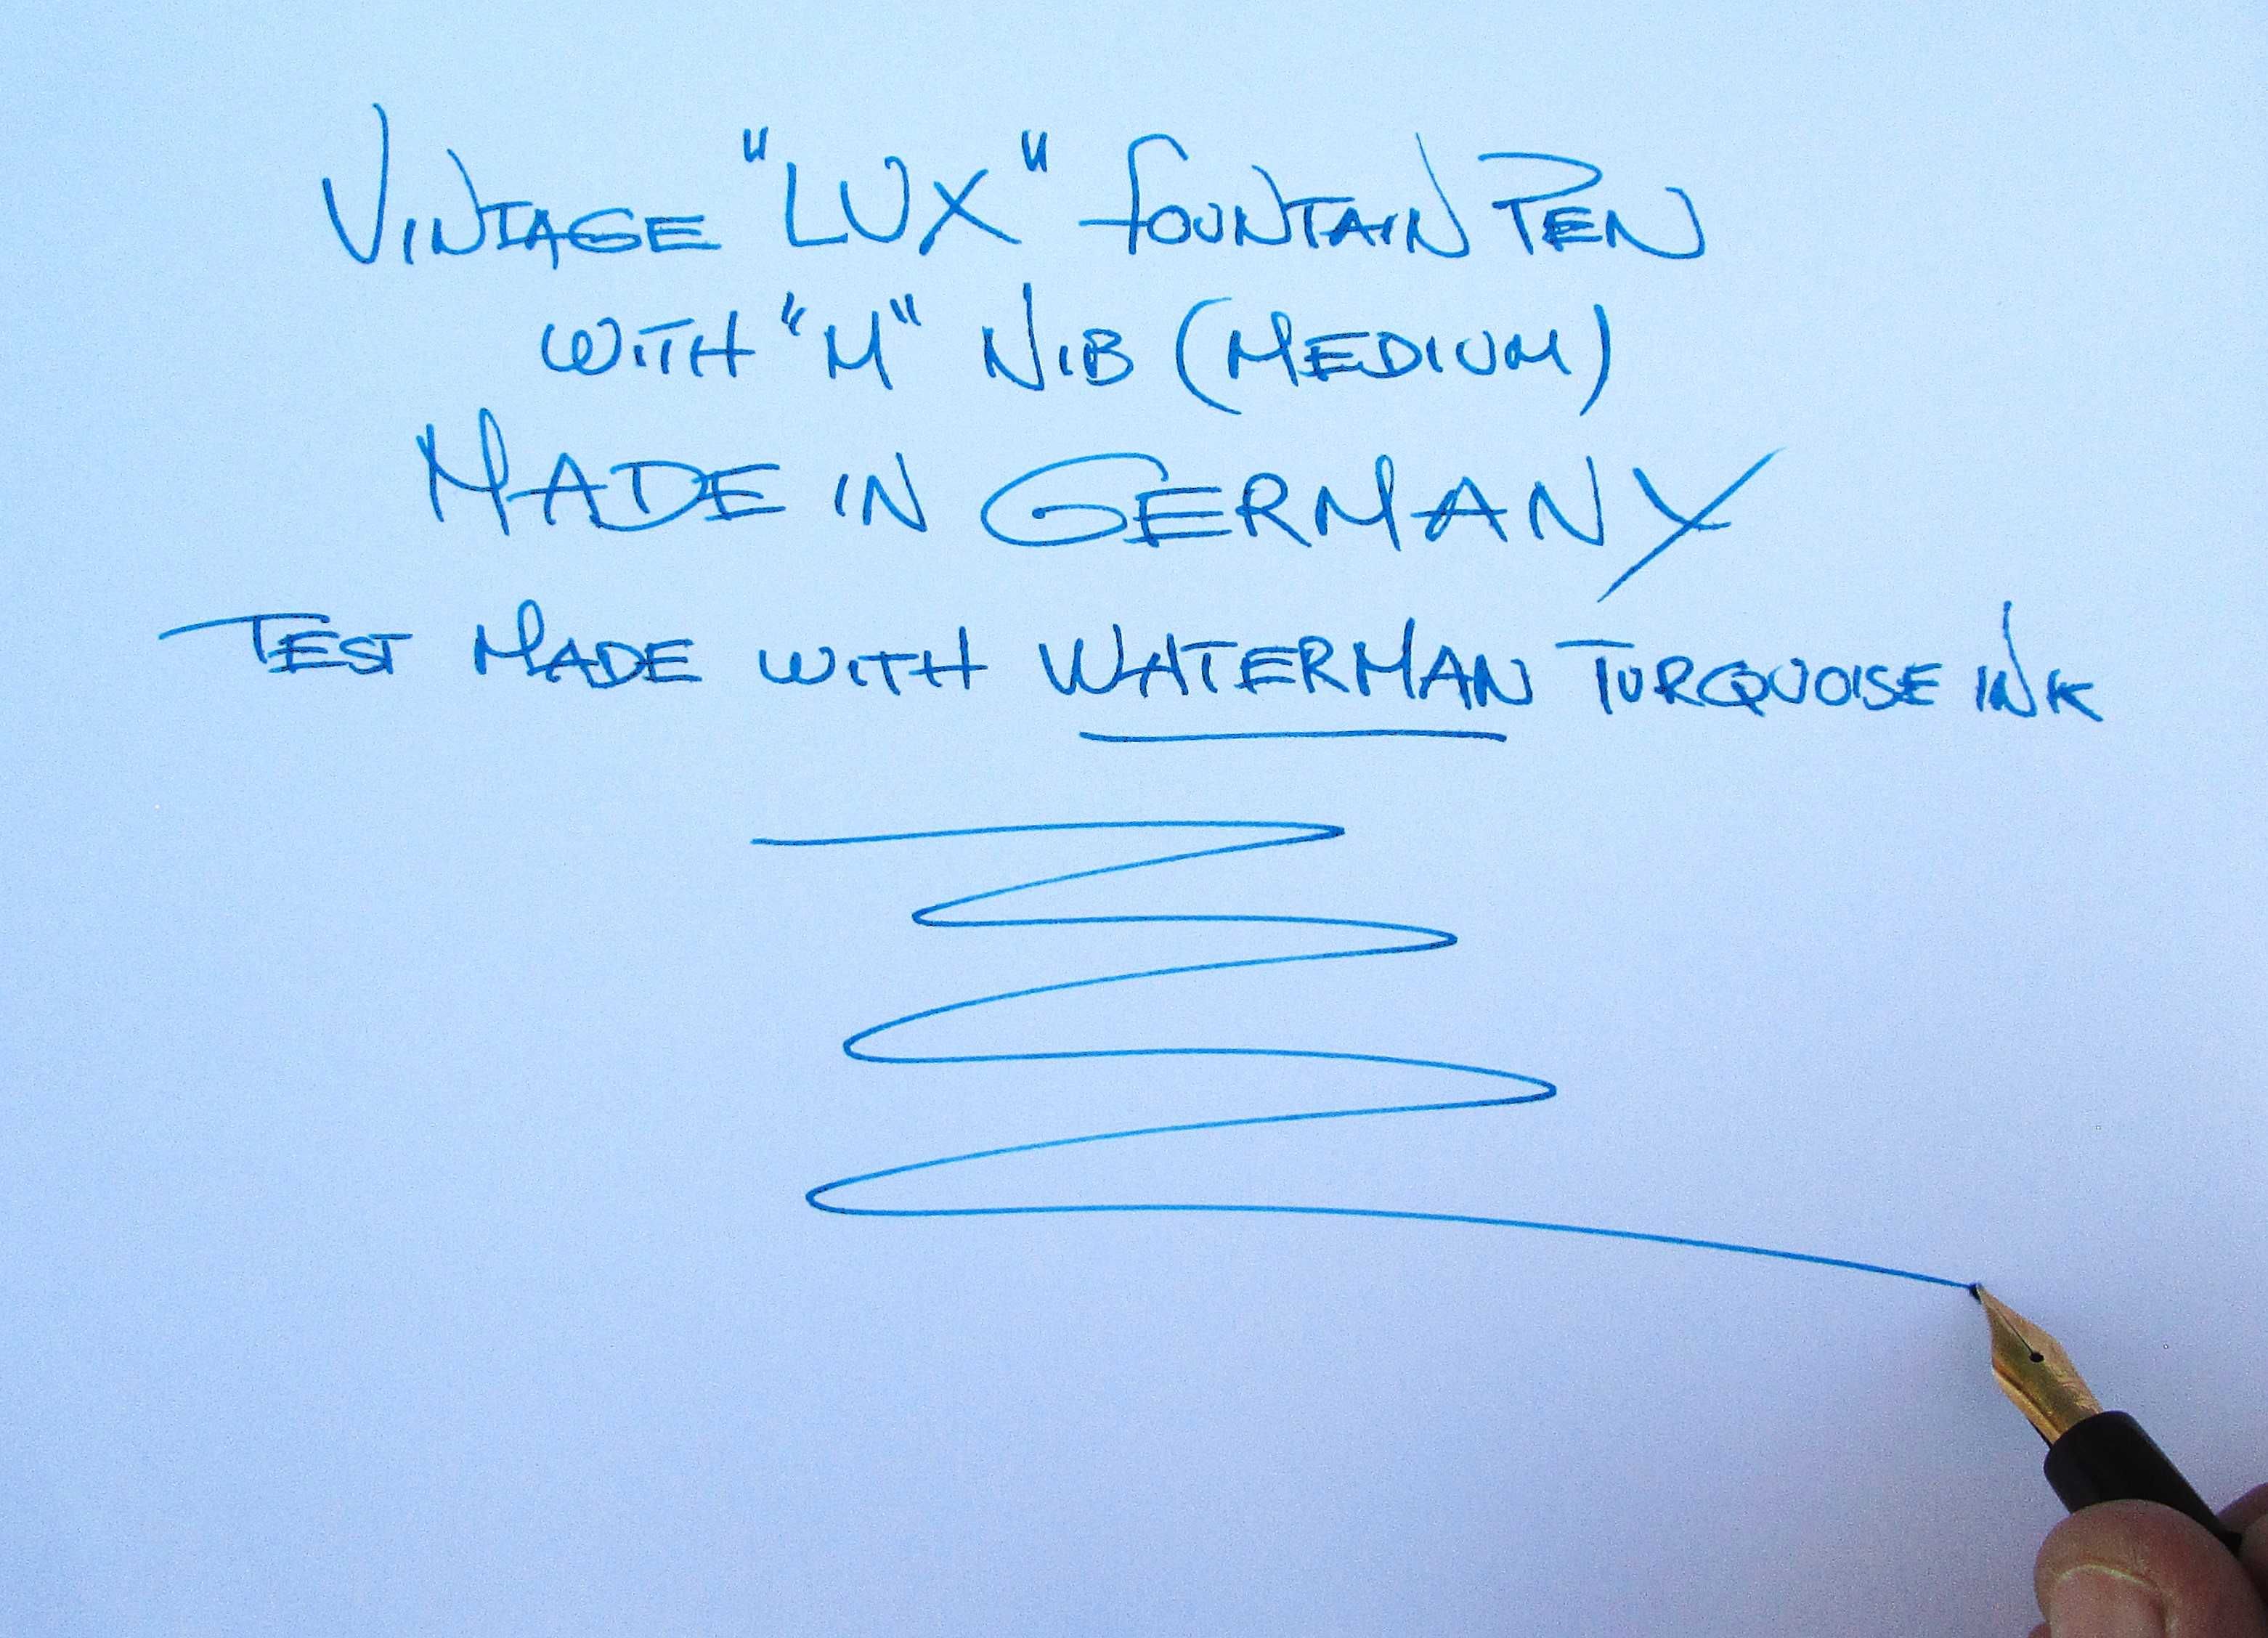 VINTAGE "LUX" FOUNTAIN PEN
WITH "M" NIB (MEDIUM)
MADE IN GERMANY
TEST MADE WITH WATERMAN TURQUOISE INK